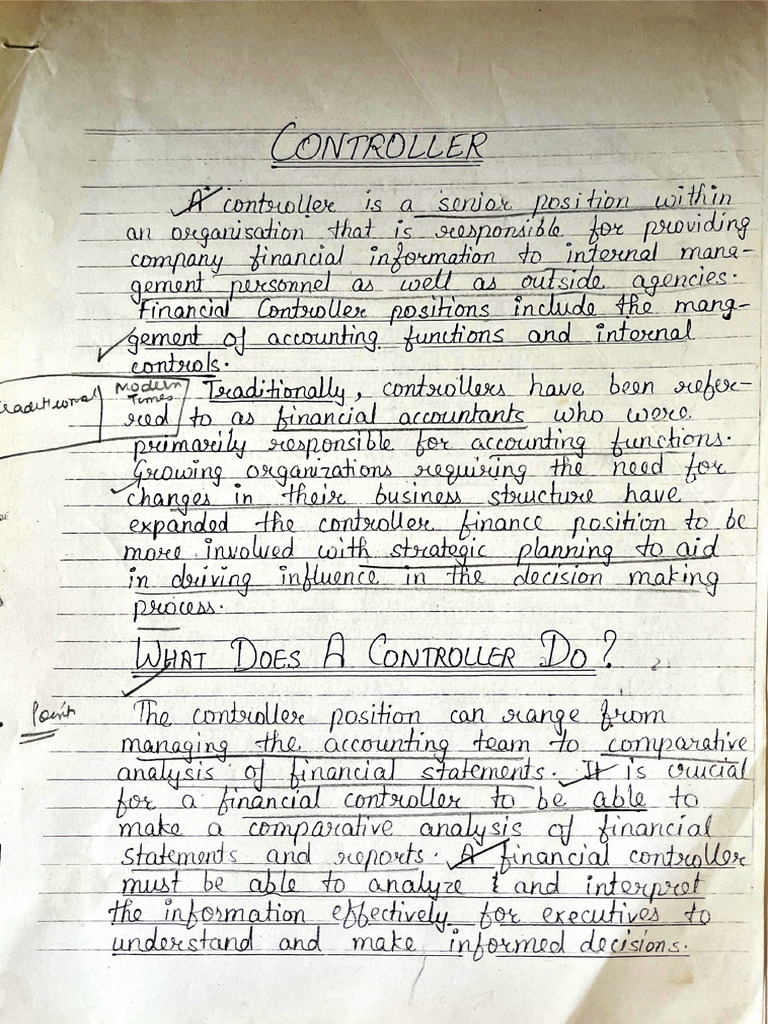 CONTROLLER
A controller is a senior position within
an organisation that is responsible for providing
company financial information to internal mana-
gement personnel as well as outside agencies.
Financial Controller positions include the mang-
gement of accounting functions and internal
controls.
Traditional Modern Times
Traditionally, controllers have been refer-
red to as financial accountants who were
primarily responsible for accounting functions.
Growing organizations requiring the need for
changes in their business structure have
expanded the controller finance position to be
more involved with strategic planning to aid
in driving influence in the decision making
process.
WHAT DOES A CONTROLLER DO?
Point
The controller position can range from
managing the accounting team to comparative
analysis of financial statements. It is crucial
for a financial controller to be able to
make a comparative analysis of financial
statements and reports. A financial controller
must be able to analyze & and interpret
the information effectively for executives to
understand and make informed decisions.